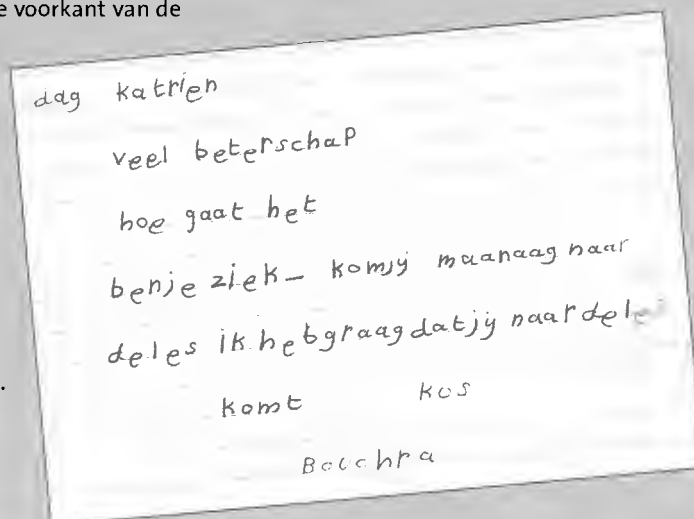 e voorkant van de
dag katrien
veel beterschap
hoe gaat het
benje ziek – komjij maanaag naar
deles ik hebgraag datjij naar deles
komt kus
Bouchra